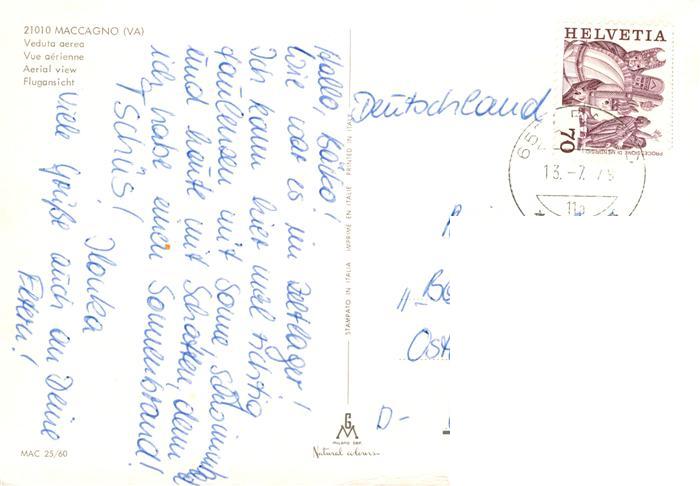 21010 MACCAGNO (VA)
Veduta aerea
Vue aérienne
Aerial view
Flugansicht
Hallo, Bärko!
Wie war es im Zeltlager!
Ich kann hier mal richtig
faulenzen mit Sonne, schwimmen
und heute mit Schatten, denn
ich habe einen Sonnenbrand!
Tschüs!
Ilonka
Viele Grüße auch an Deine
Eltern!
MAC 25/60
STAMPATO IN ITALIA IMPRIMÉ EN ITALIE PRINTED IN ITALY
GM
MILANO
Natural colours
Deutschland
HELVETIA
70
PROCESSIONE DI MENDRISIO
65
13.-7. 7
11
"Be
Ost
D-